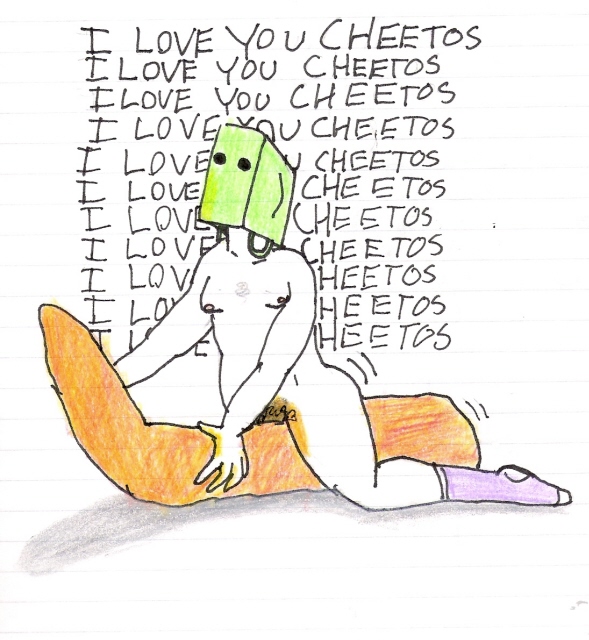 I LOVE YOU CHEETOS
I LOVE YOU CHEETOS
I LOVE YOU CHEETOS
I LOVE YOU CHEETOS
I LOVE U CHEETOS
I LOVE CHEETOS
I LOVE CHEETOS
I LOVE CHEETOS
I LOV CHEETOS
I LO HEETOS
I L E HEETOS